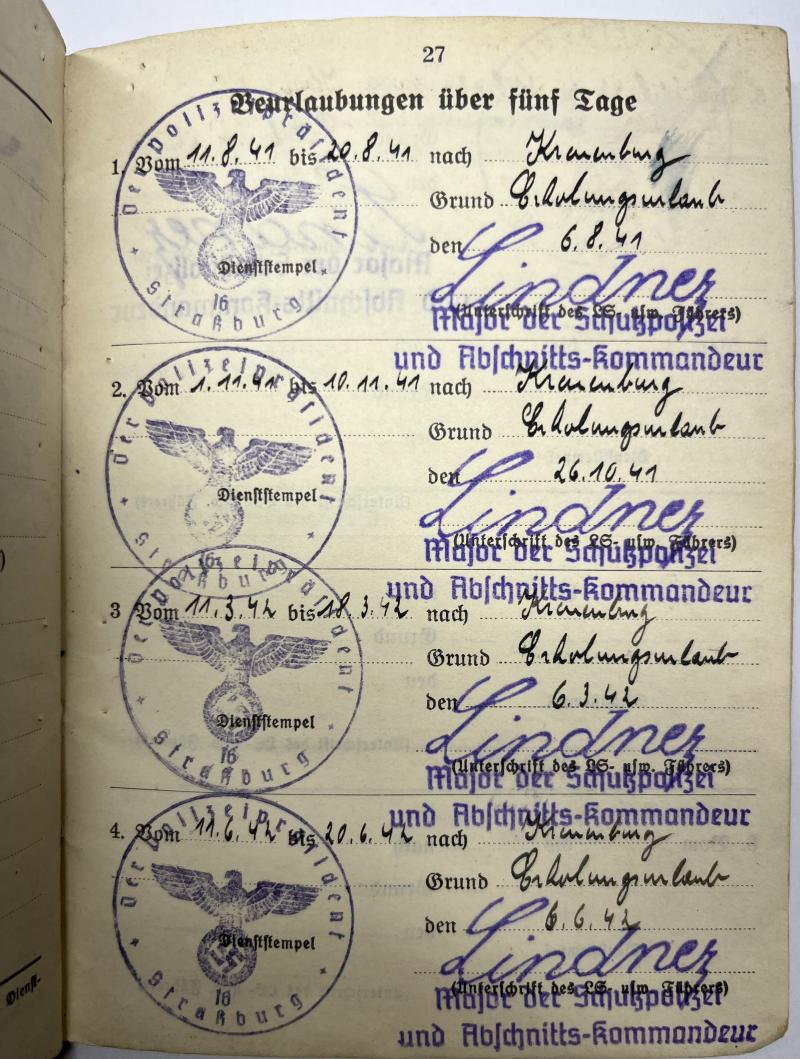 27
Beurlaubungen über fünf Tage
1. Vom 11.8.41 bis 20.8.41 nach Kronenburg
Grund Erholungsurlaub
den 6.8.41
Der Polizeipräsident
Dienststempel.
16
Straßburg
Lindner
(Unterschrift des LS- usw. Führers)
Major der Schutzpolizei
und Abschnitts-Kommandeur
2. Vom 1.11.41 bis 10.11.41 nach Kronenburg
Grund Erholungsurlaub
den 26.10.41
Der Polizeipräsident
Dienststempel
16
Straßburg
Lindner
(Unterschrift des LS- usw. Führers)
Major der Schutzpolizei
und Abschnitts-Kommandeur
3 Vom 11.3.42 bis 18.3.42 nach Kronenburg
Grund Erholungsurlaub
den 6.3.42
Der Polizeipräsident
Dienststempel
16
Straßburg
Lindner
(Unterschrift des LS- usw. Führers)
Major der Schutzpolizei
und Abschnitts-Kommandeur
4. Vom 11.6.42 bis 20.6.42 nach Kronenburg
Grund Erholungsurlaub
den 6.6.42
Der Polizeipräsident
Dienststempel
16
Straßburg
Lindner
(Unterschrift des LS- usw. Führers)
Major der Schutzpolizei
und Abschnitts-Kommandeur
Dienst-